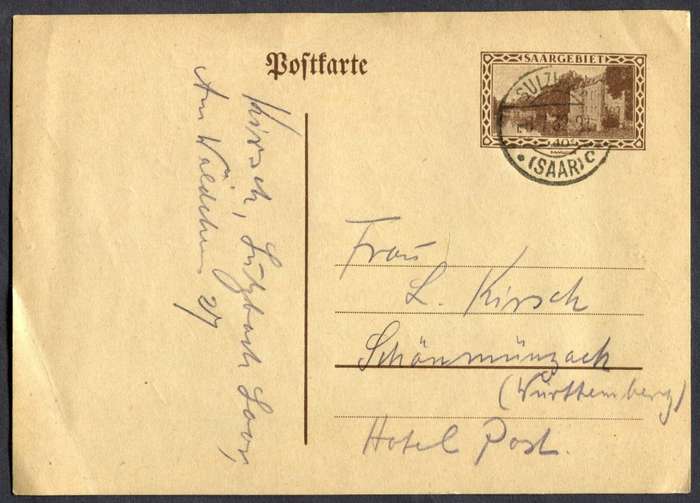 Postkarte
SAARGEBIET
40
SULZ
(SAAR) c
Kirsch, Sulzbach Saar,
Am Wäldchen 27
Frau
L. Kirsch
Schönmünzach
(Württemberg)
Hotel Post.